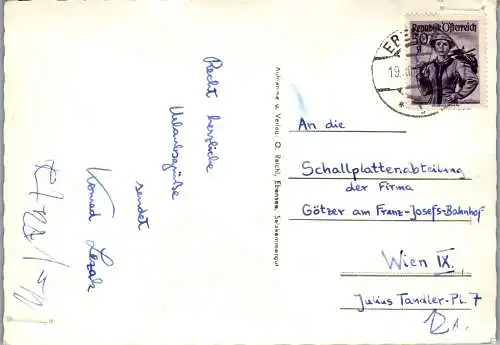 Recht herzliche
Urlaubsgrüße
sendet
Konrad Lezak
Aufnahme u. Verlag O. Reichl, Ebensee, Salzkammergut
Republik Österreich
30 g
19.
An die
Schallplattenabteilung
der Firma
Götzer am Franz-Josefs-Bahnhof
Wien IX.
Julius Tandler-Pl. 7